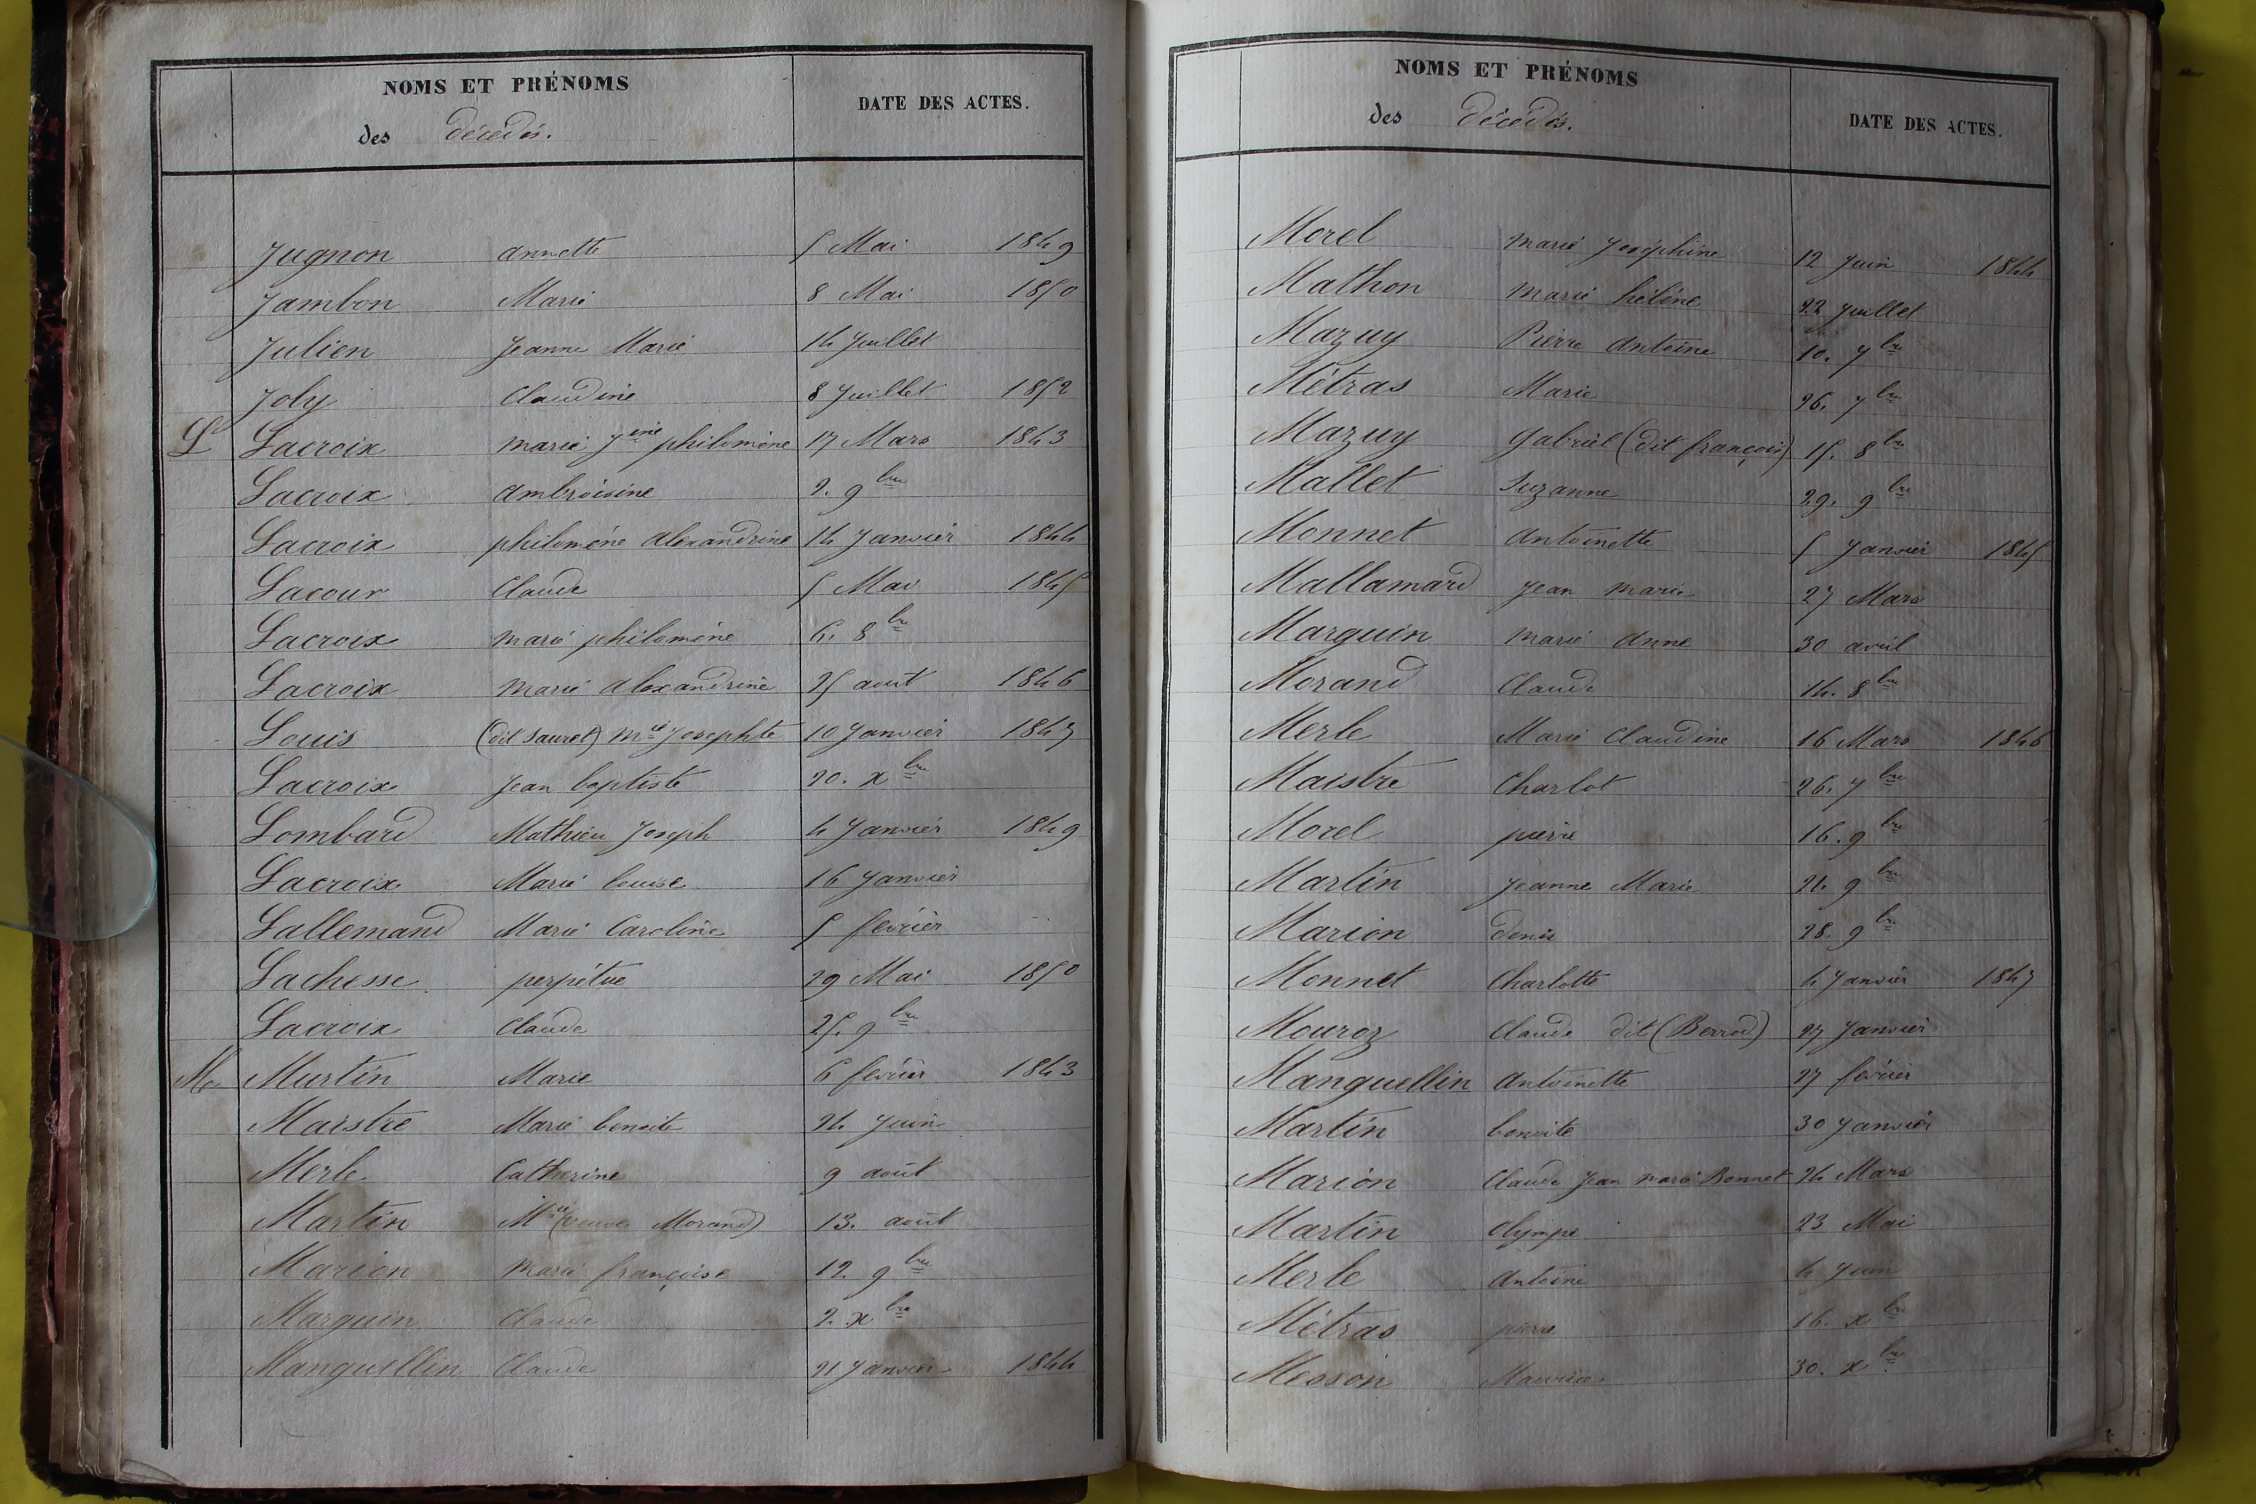 NOMS ET PRÉNOMS
des décédés.
DATE DES ACTES.
Jugnon annette 5 Mai 1849
Jambon Marie 8 Mai 1850
Julien Jeanne Marie 14 Juillet
Joly Claudine 8 Juillet 1852
L Lacroix marie Jine philomène 17 Mars 1843
Lacroix ambroisine 2. 9bre
Lacroix philomène alexandrine 14 Janvier 1844
Lacour Claude 5 Mai 1845
Lacroix marie philomène 6. 8bre
Lacroix marie alexandrine 25 aout 1846
Louis (dit Sauret) Mie Josephte 10 Janvier 1847
Lacroix Jean baptiste 20. xbre
Lombard Mathieu Joseph 4 Janvier 1849
Lacroix Marie louise 16 Janvier
Lallemand Marie Caroline 5 février
Lachesse perpétue 29 Mai 1850
Lacroix Claude 25. 9bre
M Martin Marie 6 février 1843
Maistre Marie benoite 24 Juin
Merle Catherine 9 août
Martin Mie (veuve Morand) 13. août
Marion Marie françoise 12. 9bre
Marguin Claude 2. xbre
Manguellin Claude 21 Janvier 1844
NOMS ET PRÉNOMS
des décédés.
DATE DES ACTES.
Morel marie Joséphine 12 Juin 1844
Mathon marie hélène 22 Juillet
Mazuy Pierre antoine 10. 7bre
Métras Marie 26. 7bre
Mazuy gabriel (dit françois) 15. 8bre
Mallet Suzanne 29. 9bre
Monnet antoinette 5 Janvier 1845
Mallamard Jean marie 27 Mars
Marguin marie anne 30 avril
Morand Claude 14. 8bre
Merle Marie Claudine 16 Mars 1846
Maistre Charlot 26. 7bre
Morel pierre 16. 9bre
Martin Jeanne Marie 21. 9bre
Marion denis 28. 9bre
Monnet Charlotte 4 Janvier 1847
Mouroz Claude dit (Berrod) 27 Janvier
Manguellin antoinette 27 février
Martin benoite 30 Janvier
Marion Claude Jean marie Bonnet 24 Mars
Martin Olympe 23 Mai
Merle antoine 4 Juin
Métras pierre 16. xbre
Messon 30. xbre